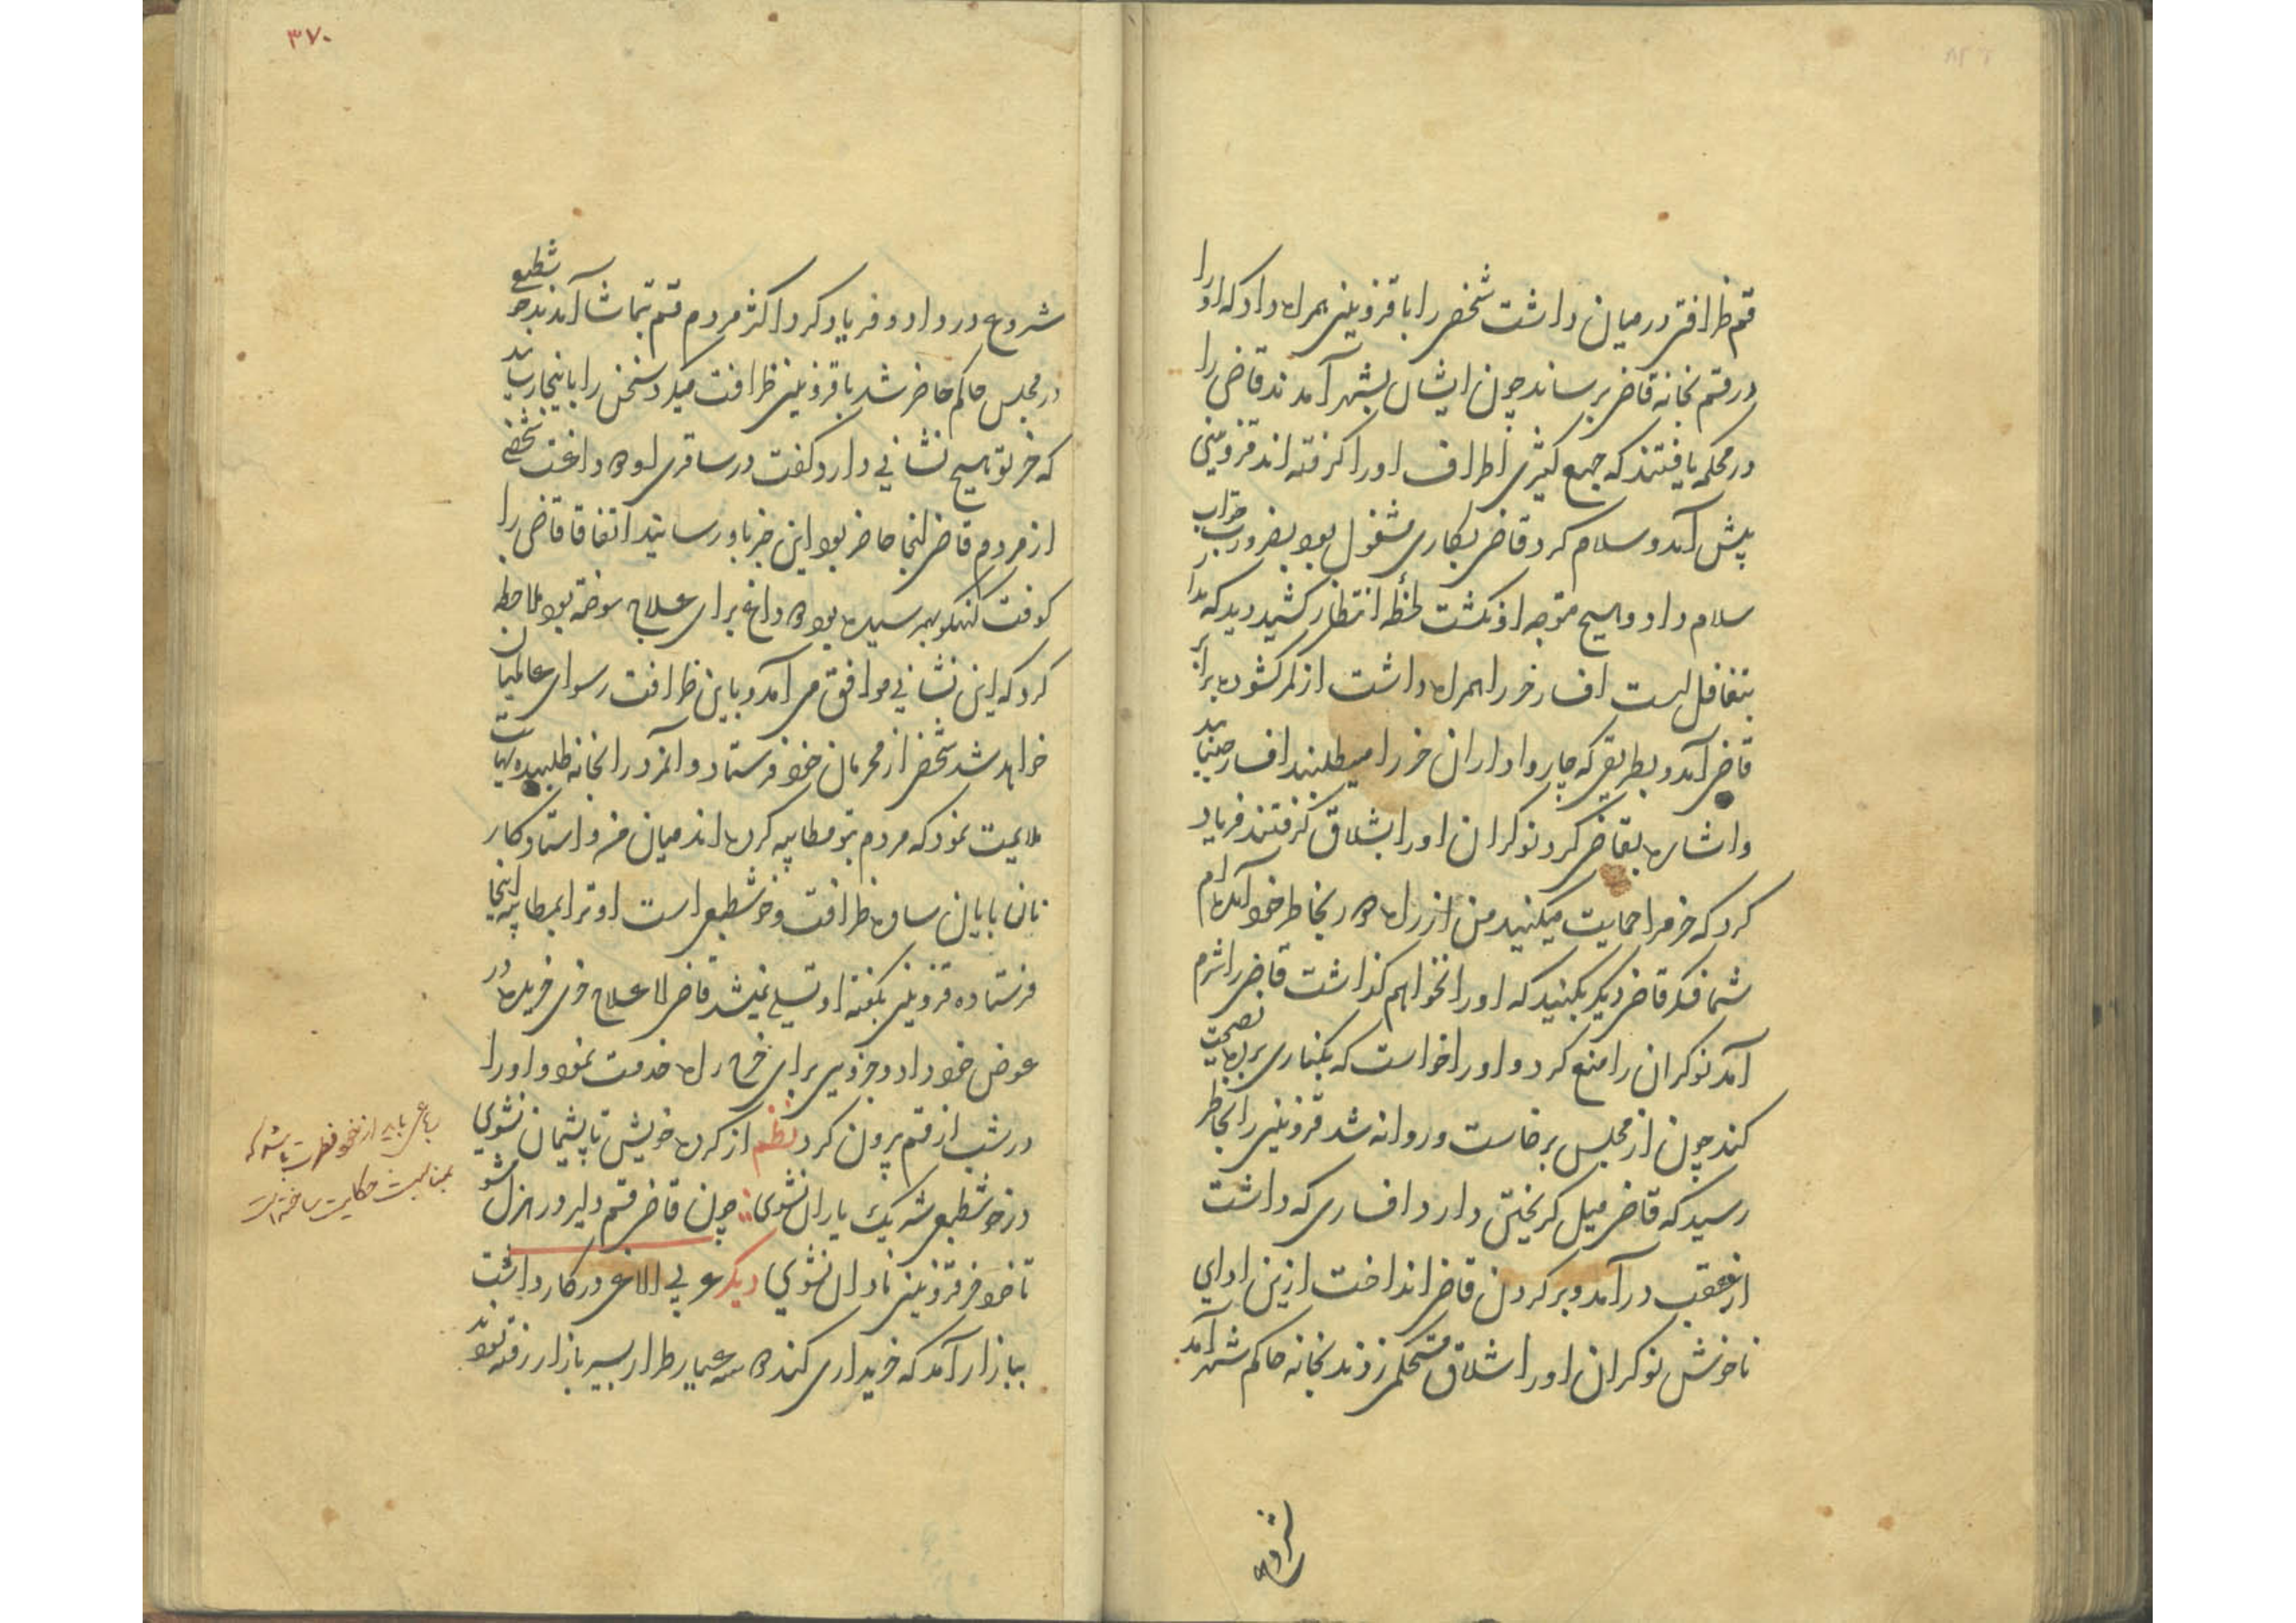 قم ظرافتی درمیان داشت شخصی را با قزوینی همراه داد که او را
در قم بخانه قاضی برساند چون ایشان بشهر آمدند قاضی را
در محکمه یافتند که جمع کثیری اطراف او را گرفته اند قزوینی
پیش آمد و سلام کرد قاضی بکاری مشغول بود بضرورت جواب
سلام داد و هیچ متوجه او نگشت لحظه انتظار کشید دید که
بتغافل است افسار خر را همراه داشت از کمر گشوده برابر
قاضی آمد و بطریقی که چاروا داران خر را میطلبند افسار جنباند
و اشاره بقاضی کرد نوکران او را بشلاق گرفتند فریاد
کرد که خر مرا حمایت میکنید من از راه دور بخاطر خود آمده ام
شما فکر قاضی دیگر بکنید که او را نخواهم گذاشت قاضی را شرم
آمد نوکران را منع کرد و او را خواست که بکناری برده نصیحت
کند چون از مجلس برخاست و روانه شد قزوینی را بخاطر
رسید که قاضی میل گریختن دارد افساری که داشت
از عقب در آمد و بر گردن قاضی انداخت ازین ادای
ناخوش نوکران او را شلاق مستحکمی زدند بخانه حاکم شهر آمد
شروع
۳۷۰
شروع در داد و فریاد کرد اکثر مردم قم بتماشا آمدند خوشطبعی
در مجلس حاکم حاضر شد با قزوینی ظرافت میکرد سخن را باینجا رساند
که خر تو هیچ نشانی دارد گفت در ساغری او داغیست شخصی
از مردم قاضی آنجا حاضر بود این خبر باو رسانید اتفاقا قاضی را
کوفت بهمرسیده بود داغ برای علاج سوخته بود ملاحظه
کرد که این نشانی موافق می آمد و باین ظرافت رسوای عالمیان
خواهد شد شخصی از محرمان خود فرستاد و آنمرد را بخانه طلبیده نهایت
ملایمت نمود که مردم بتو مطایبه کرده اند میان من و استاد کار
نان بابایان ساوه ظرافت و خوشطبعی است او ترا بمطایبه اینجا
فرستاده قزوینی بگفته او تسلی نمیشد قاضی لا علاج خری خریده در
عوض خود داد و جزوی برای خرج راه خدمت نمود و او را
در شب از قم بیرون کرد نظم از کرده خویش تا پشیمان نشوی
در خوشطبعی شه یک یاران نشوی چون قاضی قم دلیر در هزل مشو
تا خود خر قزوینی نادان نشوی دیگر عربی الاغی در کار داشت
ببازار آمد که خریداری کند سه عیار طرار بسیر بازار رفته بودند
رباعی باید از خود فطرت باشد که
بمناسبت حکایت ساخته است